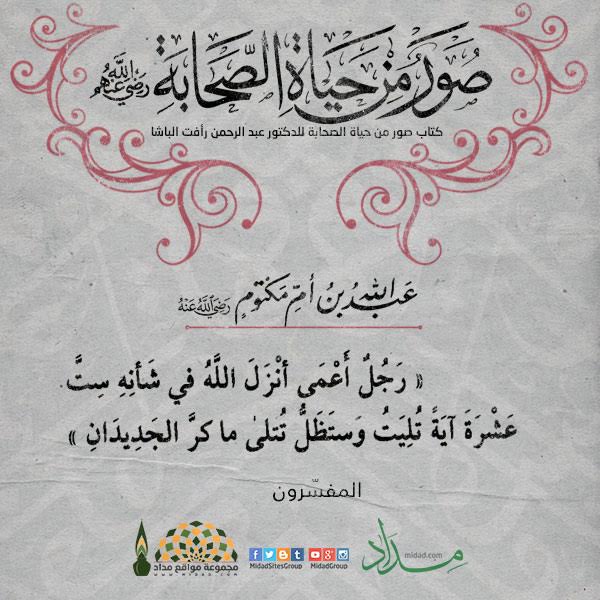 صُوَرٌ مِنْ حَيَاةِ الصَّحَابَةِ رَضِيَ اللَّهُ عَنْهُمْ
كتاب صور من حياة الصحابة للدكتور عبد الرحمن رأفت الباشا
عَبْدُ اللهِ بْنُ أُمِّ مَكْتُومٍ رَضِيَ اللَّهُ عَنْهُ
« رَجُلٌ أَعْمَى أنْزَلَ اللَّهُ في شَأنِهِ سِتَّ
عَشْرَةَ آيَةً تُلِيَتُ وَستَظَلُّ تُتلىٰ ما كرَّ الجَدِيدَانِ »
المفسّرون
مجموعة مواقع مداد
WWW.MIDAD.COM
MidadSitesGroup
MidadGroup
midad.com
مداد